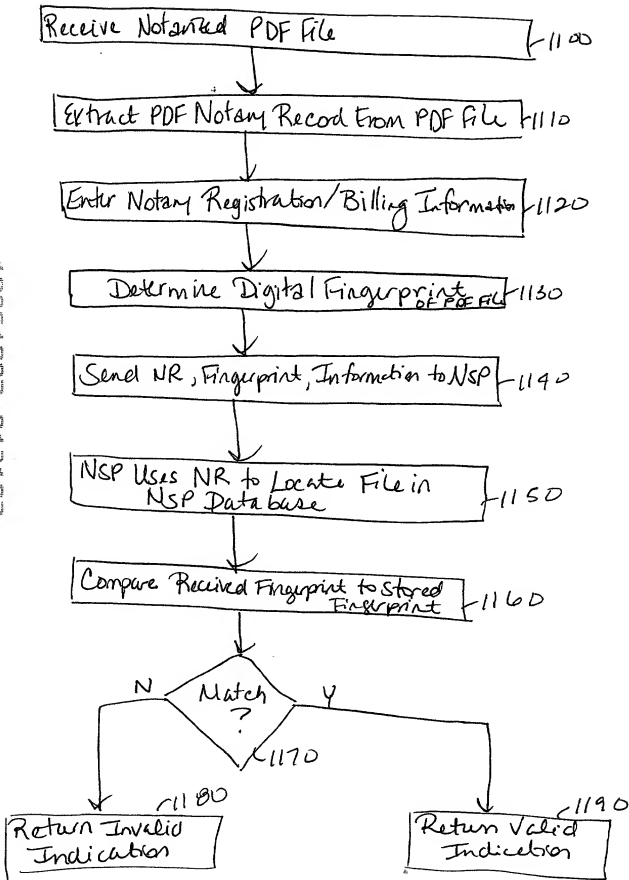 Receive Notarized PDF File
1100
Extract PDF Notary Record From PDF File
1110
Enter Notary Registration/Billing Information
1120
Determine Digital Fingerprint
OF PDF File
1130
Send NR, Fingerprint, Information to NSP
1140
NSP Uses NR to Locate File in
NSP Database
1150
Compare Received Fingerprint to Stored
Fingerprint
1160
N
Match
?
Y
1170
1180
Return Invalid
Indication
1190
Return Valid
Indication